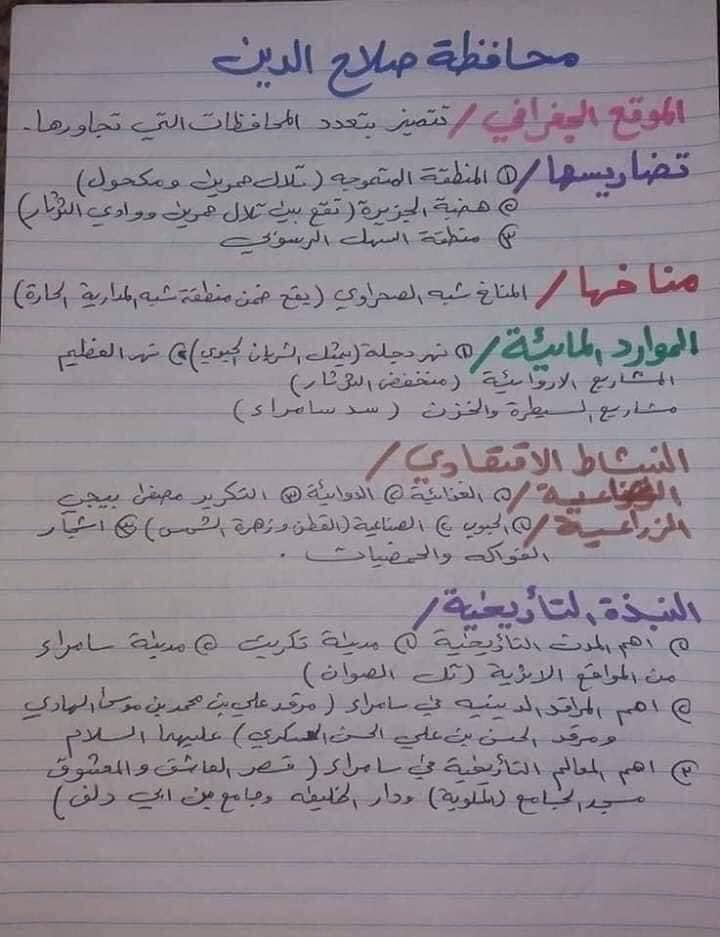 محافظة صلاح الدين
الموقع الجغرافي / تتميز بتعدد المحافظات التي تجاورها.
تضاريسها / ① المنطقة المتموجه (تلال حمرين ومكحول)
② هضبة الجزيرة (تقع بين تلال حمرين ووادي الثرثار)
③ منطقة السهل الرسوبي
مناخها / المناخ شبه الصحراوي (يقع ضمن منطقة شبه المدارية الحارة)
الموارد المائية / ① نهر دجلة (يمثل الشريان الحيوي) ② نهر العظيم
المشاريع الاروائية (منخفض الثرثار)
مشاريع السيطرة والخزن (سد سامراء)
النشاط الاقتصادي /
الصناعية / ① الغذائية ② الدوائية ③ التكرير مصفى بيجي
الزراعية / ① الحبوب ② الصناعية (القطن وزهرة الشمس) ③ اشجار
الفواكه والحمضيات .
النبذة التأريخية /
① اهم المدن التأريخية ① مدينة تكريت ② مدينة سامراء
من المواقع الاثرية (تل الصوان)
② اهم المراقد الدينيه في سامراء (مرقد علي بن محمد بن موسى الهادي
ومرقد الحسن بن علي الحسن العسكري) عليهما السلام
③ اهم المعالم التأريخية في سامراء (قصر العاشق والمعشوق
مسجد الجامع (الملوية) ودار الخليفه وجامع بن ابي دلف)